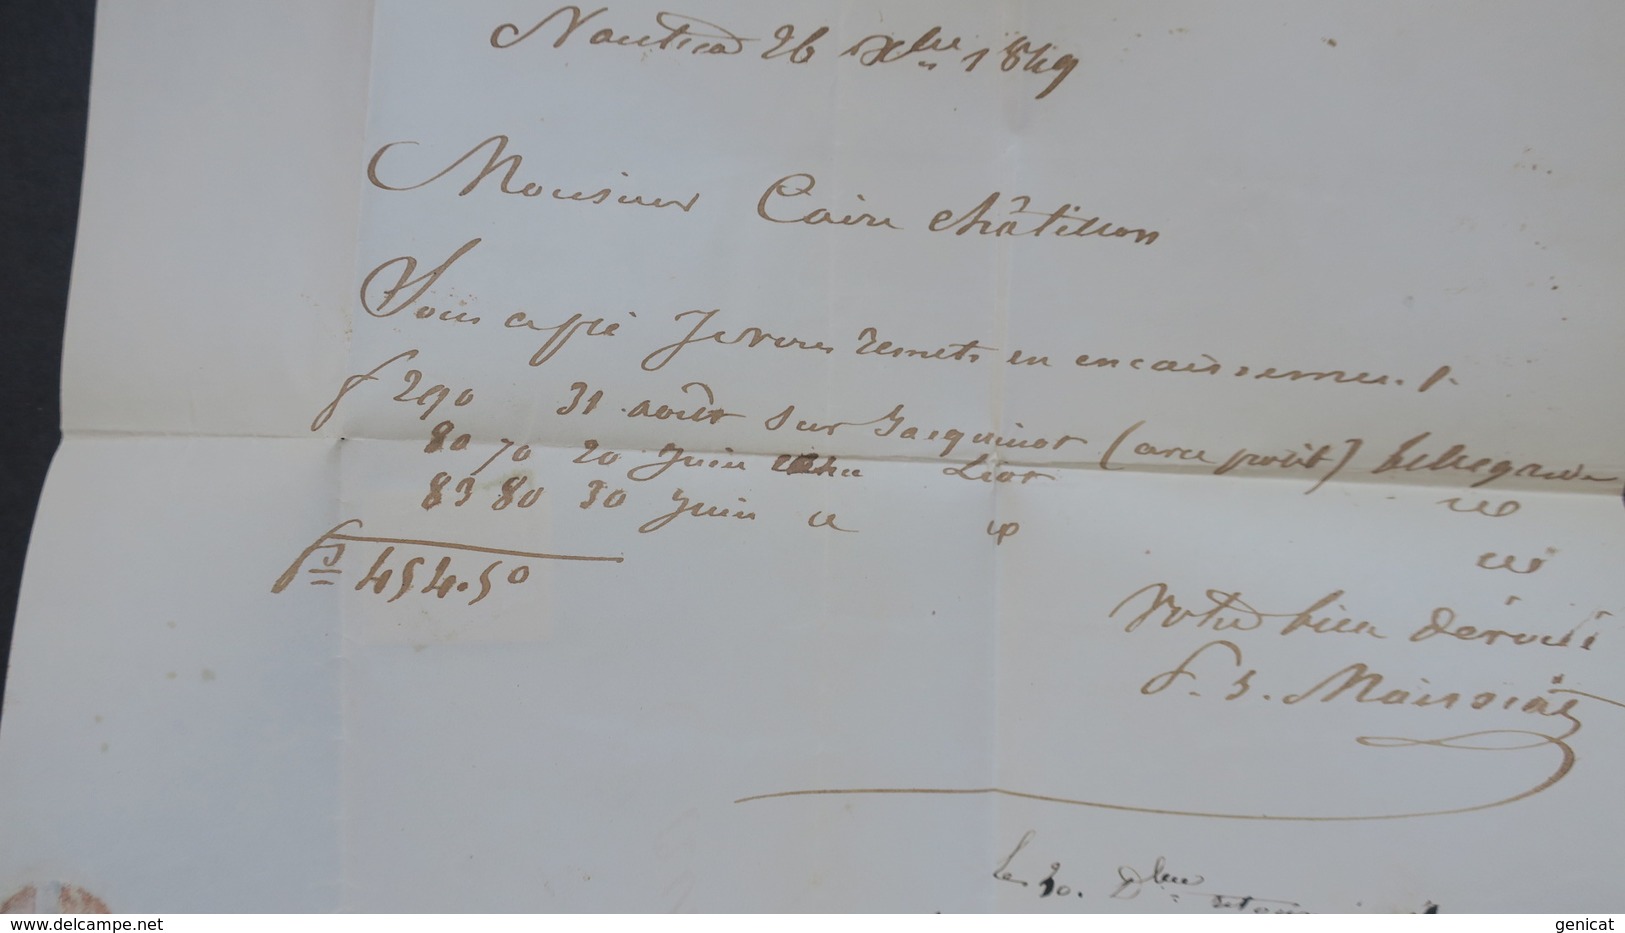 Nantua 26 Xbre 1849
Monsieur Caire châtillon
Sous ce pli Je vous remets en encaissement.
f 290 31 août sur Jacquinot (avec prôt) Bellegarde
80 70 20 Juin Liot
83 80 30 Juin
f 454.50
Votre bien dévoué
F. J. Maissiat
Le 30. Dbre
delcampe.net
genicat